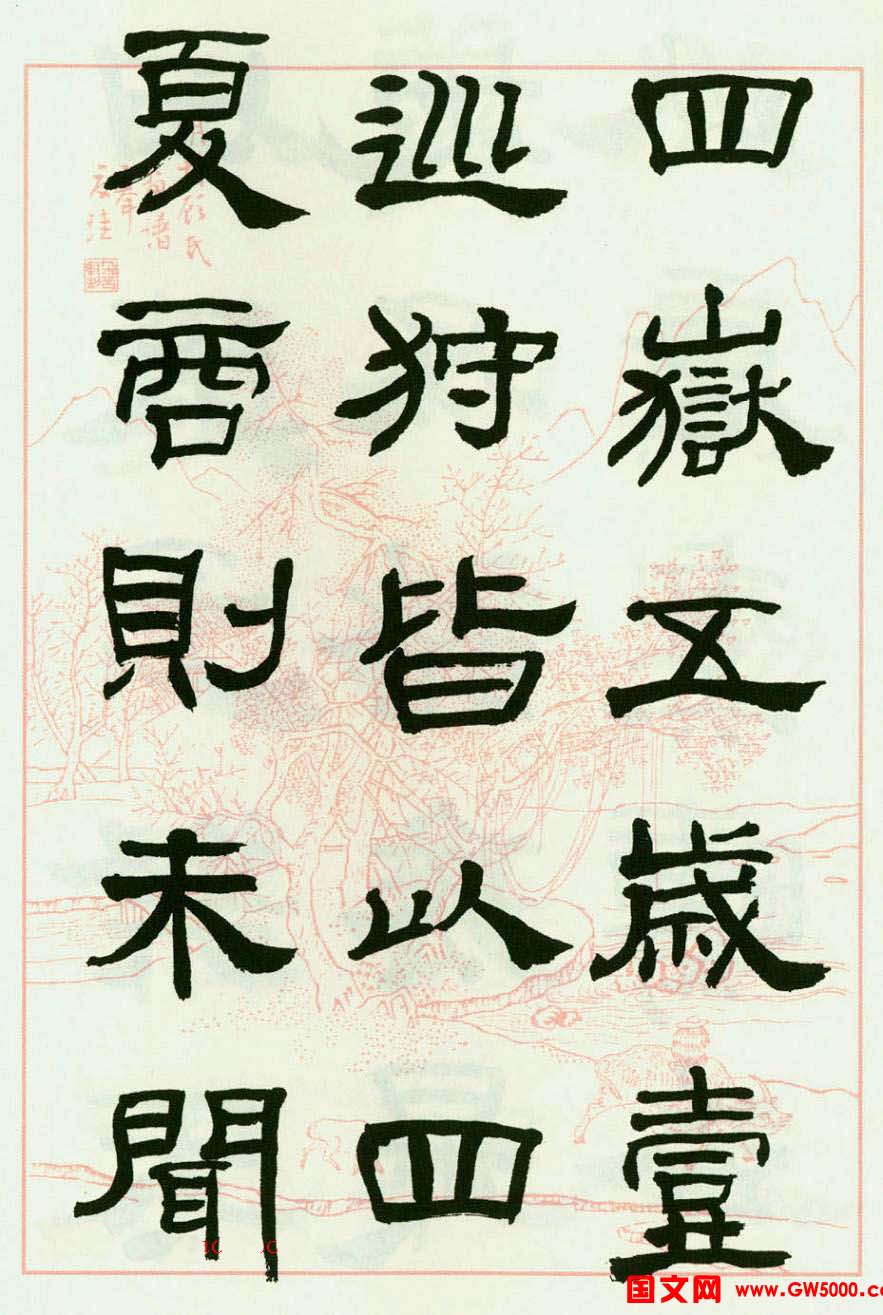 四嶽五歲壹
巡狩皆以四
夏商則未聞
國文网 www.GW5000.co